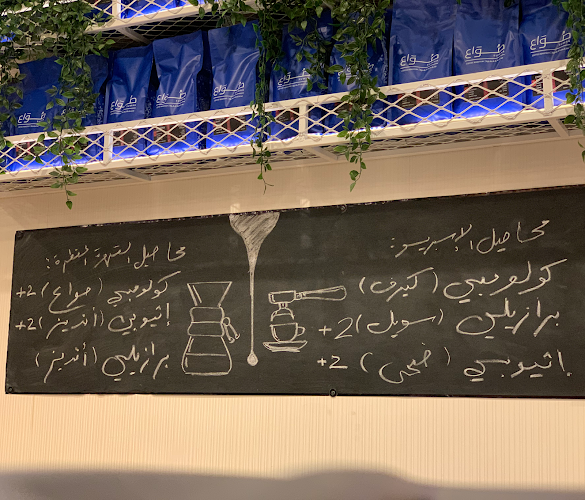 صُوَاع
صُوَاع
صُوَاع
صُوَاع
صُوَاع
صُوَاع
محاصيل الإسبريسو:
كولومبي (كيرف)
برازيلين (سويل) 2+
اثيوبي (ضحى) 2+
محاصيل القهوة المقطرة:
كولومبي (صواع) 2+
إثيوبي (أنديز) 2+
برازيلي (أنديز)